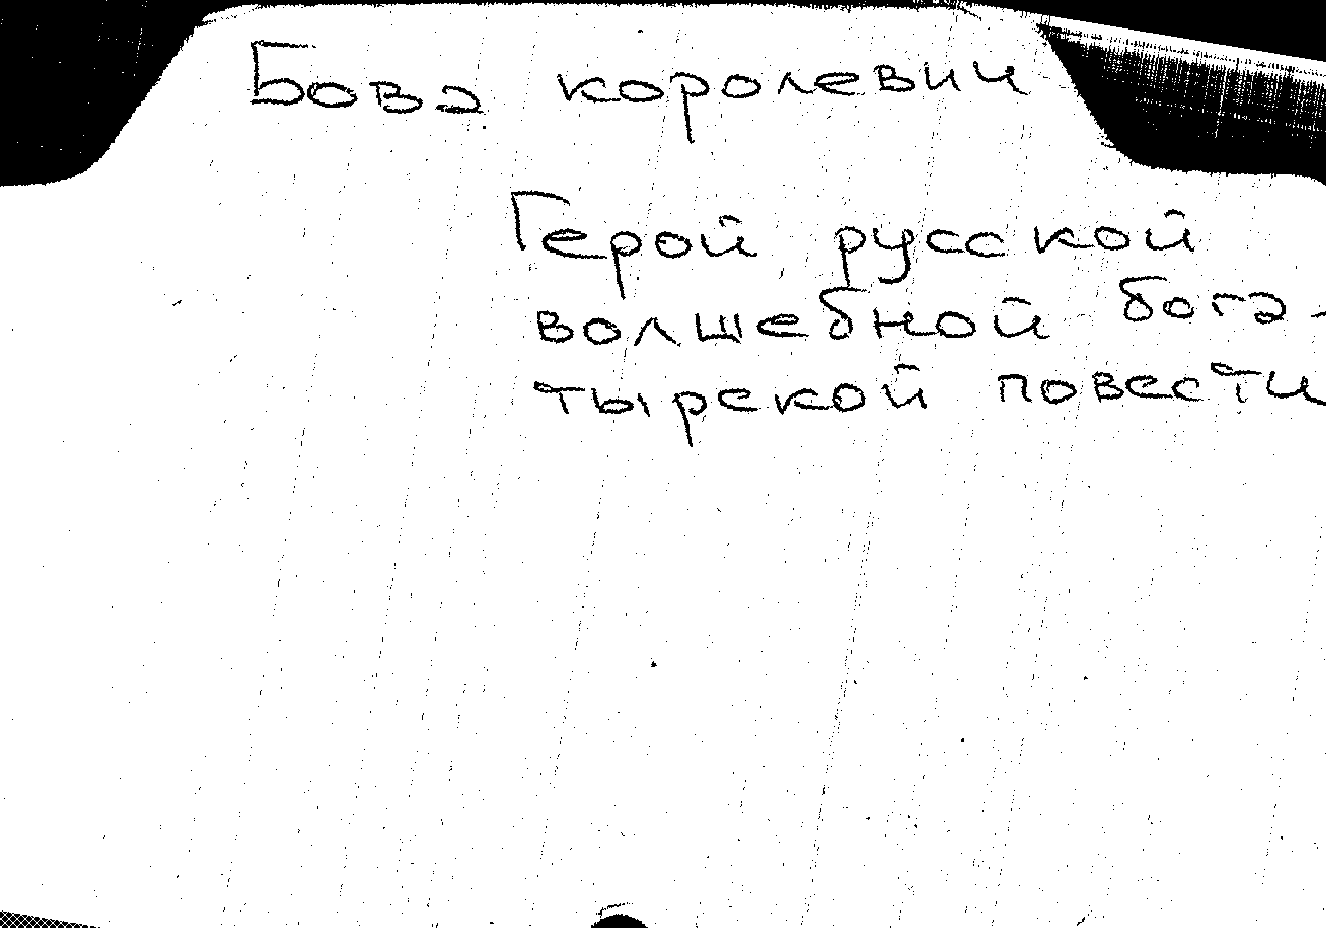 Бова королевич
Герой русской
волшебной бога-
тырской повести